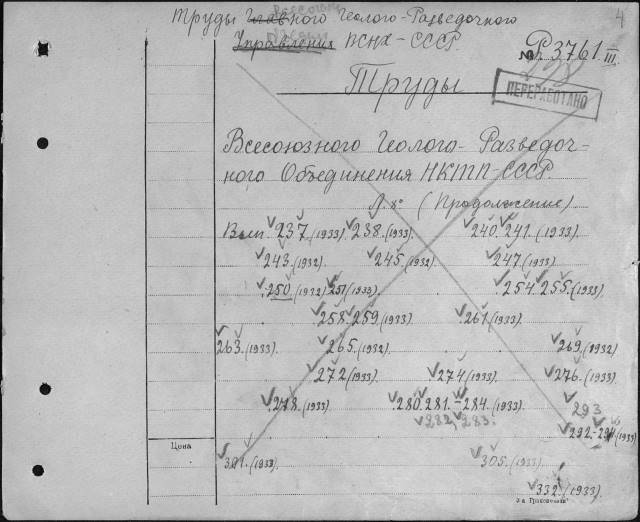 Труды Главного Геолого-Разведочного
4
Управления ВСНХ-СССР.
№ P 3761 III
Труды
ПЕРЕРАБОТАНО
Всесоюзного Геолого-Разведоч-
ного Объединения НКТП-СССР.
(Продолжение).
Вып. 237 (1933). 238. (1933). 240. 241. (1933).
243. (1932). 245. (1932) 247. (1933)
250. (1932) 251 (1933). 254. 255. (1933).
258. 259. (1933) 261. (1933).
263. (1933). 265. (1932) 269. (1932)
272 (1933). 274. (1933). 276. (1933).
278. (1933) 280. 281. - 284. (1933). 293
282, 283. 292.-294 (1933)
Цена
301. (1933). 305. (1933).
332. (1933).